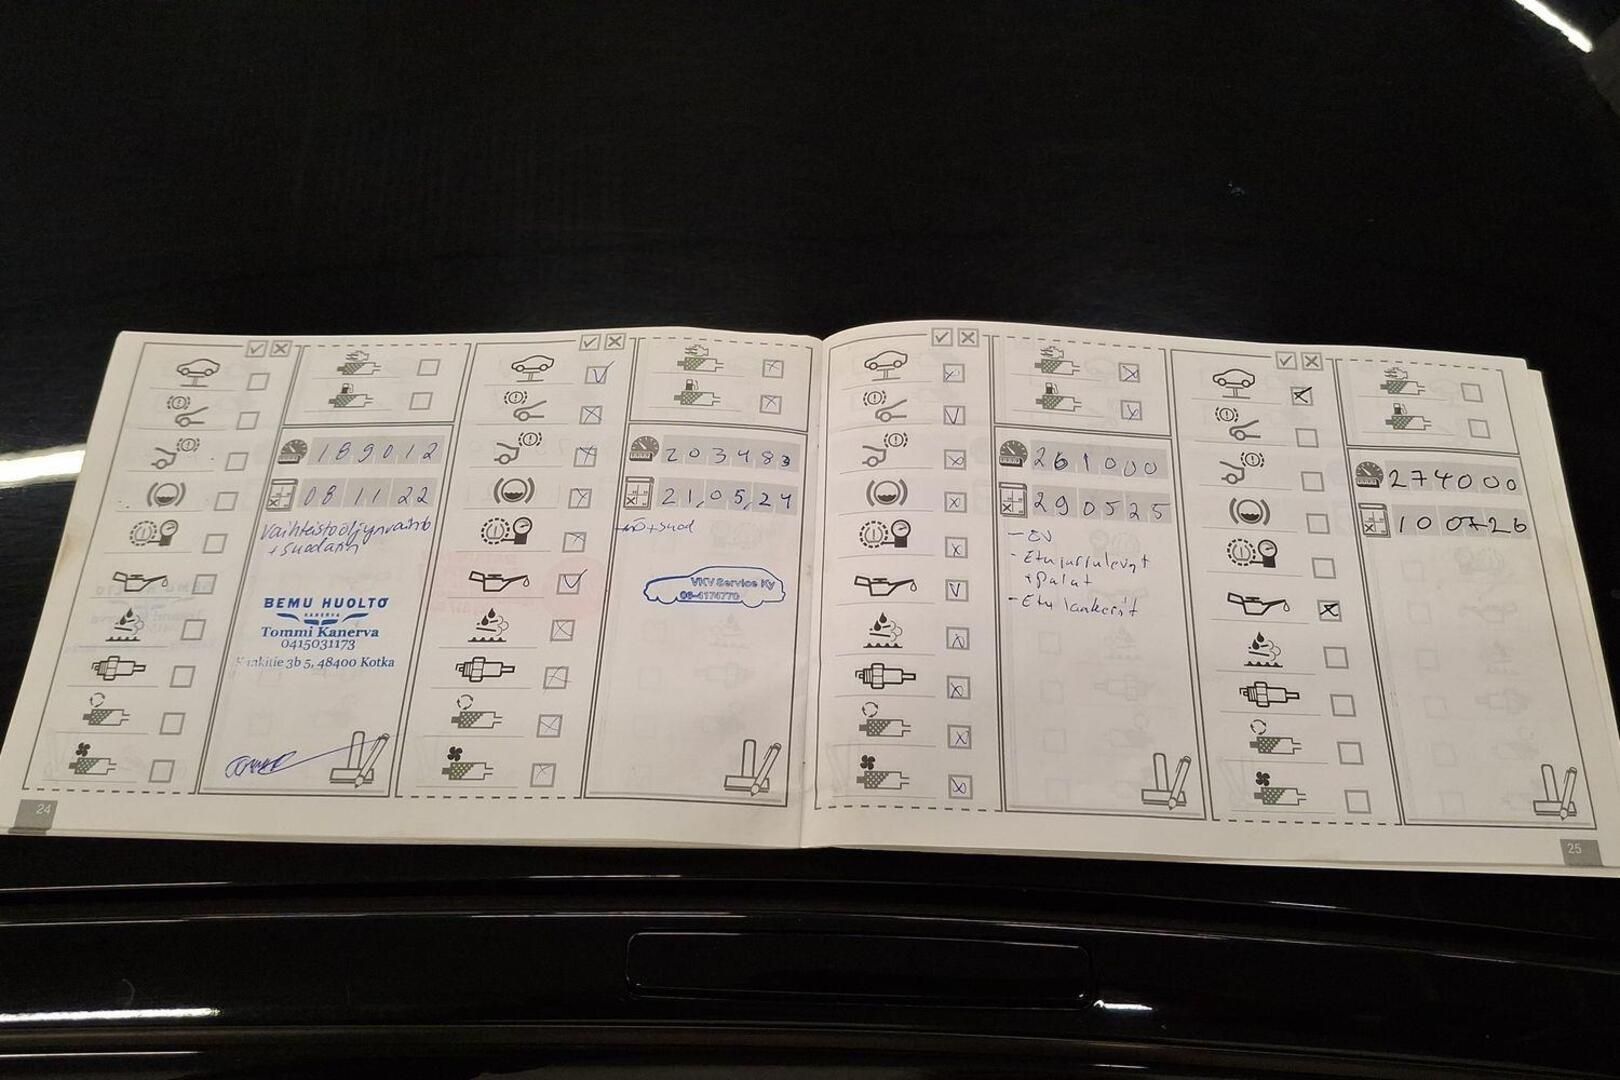 189012
08 11 22
Vaihteistoöljynvaihto
+ suodatin
BEMU HUOLTO
KANERVA
Tommi Kanerva
0415031173
3b 5, 48400 Kotka
24
203483
21.05.24
+ suod
VKV Service Ky
05-4174770
261000
290525
- Etujarrulevyt
+ Palat
- Etu lankerit
274000
25